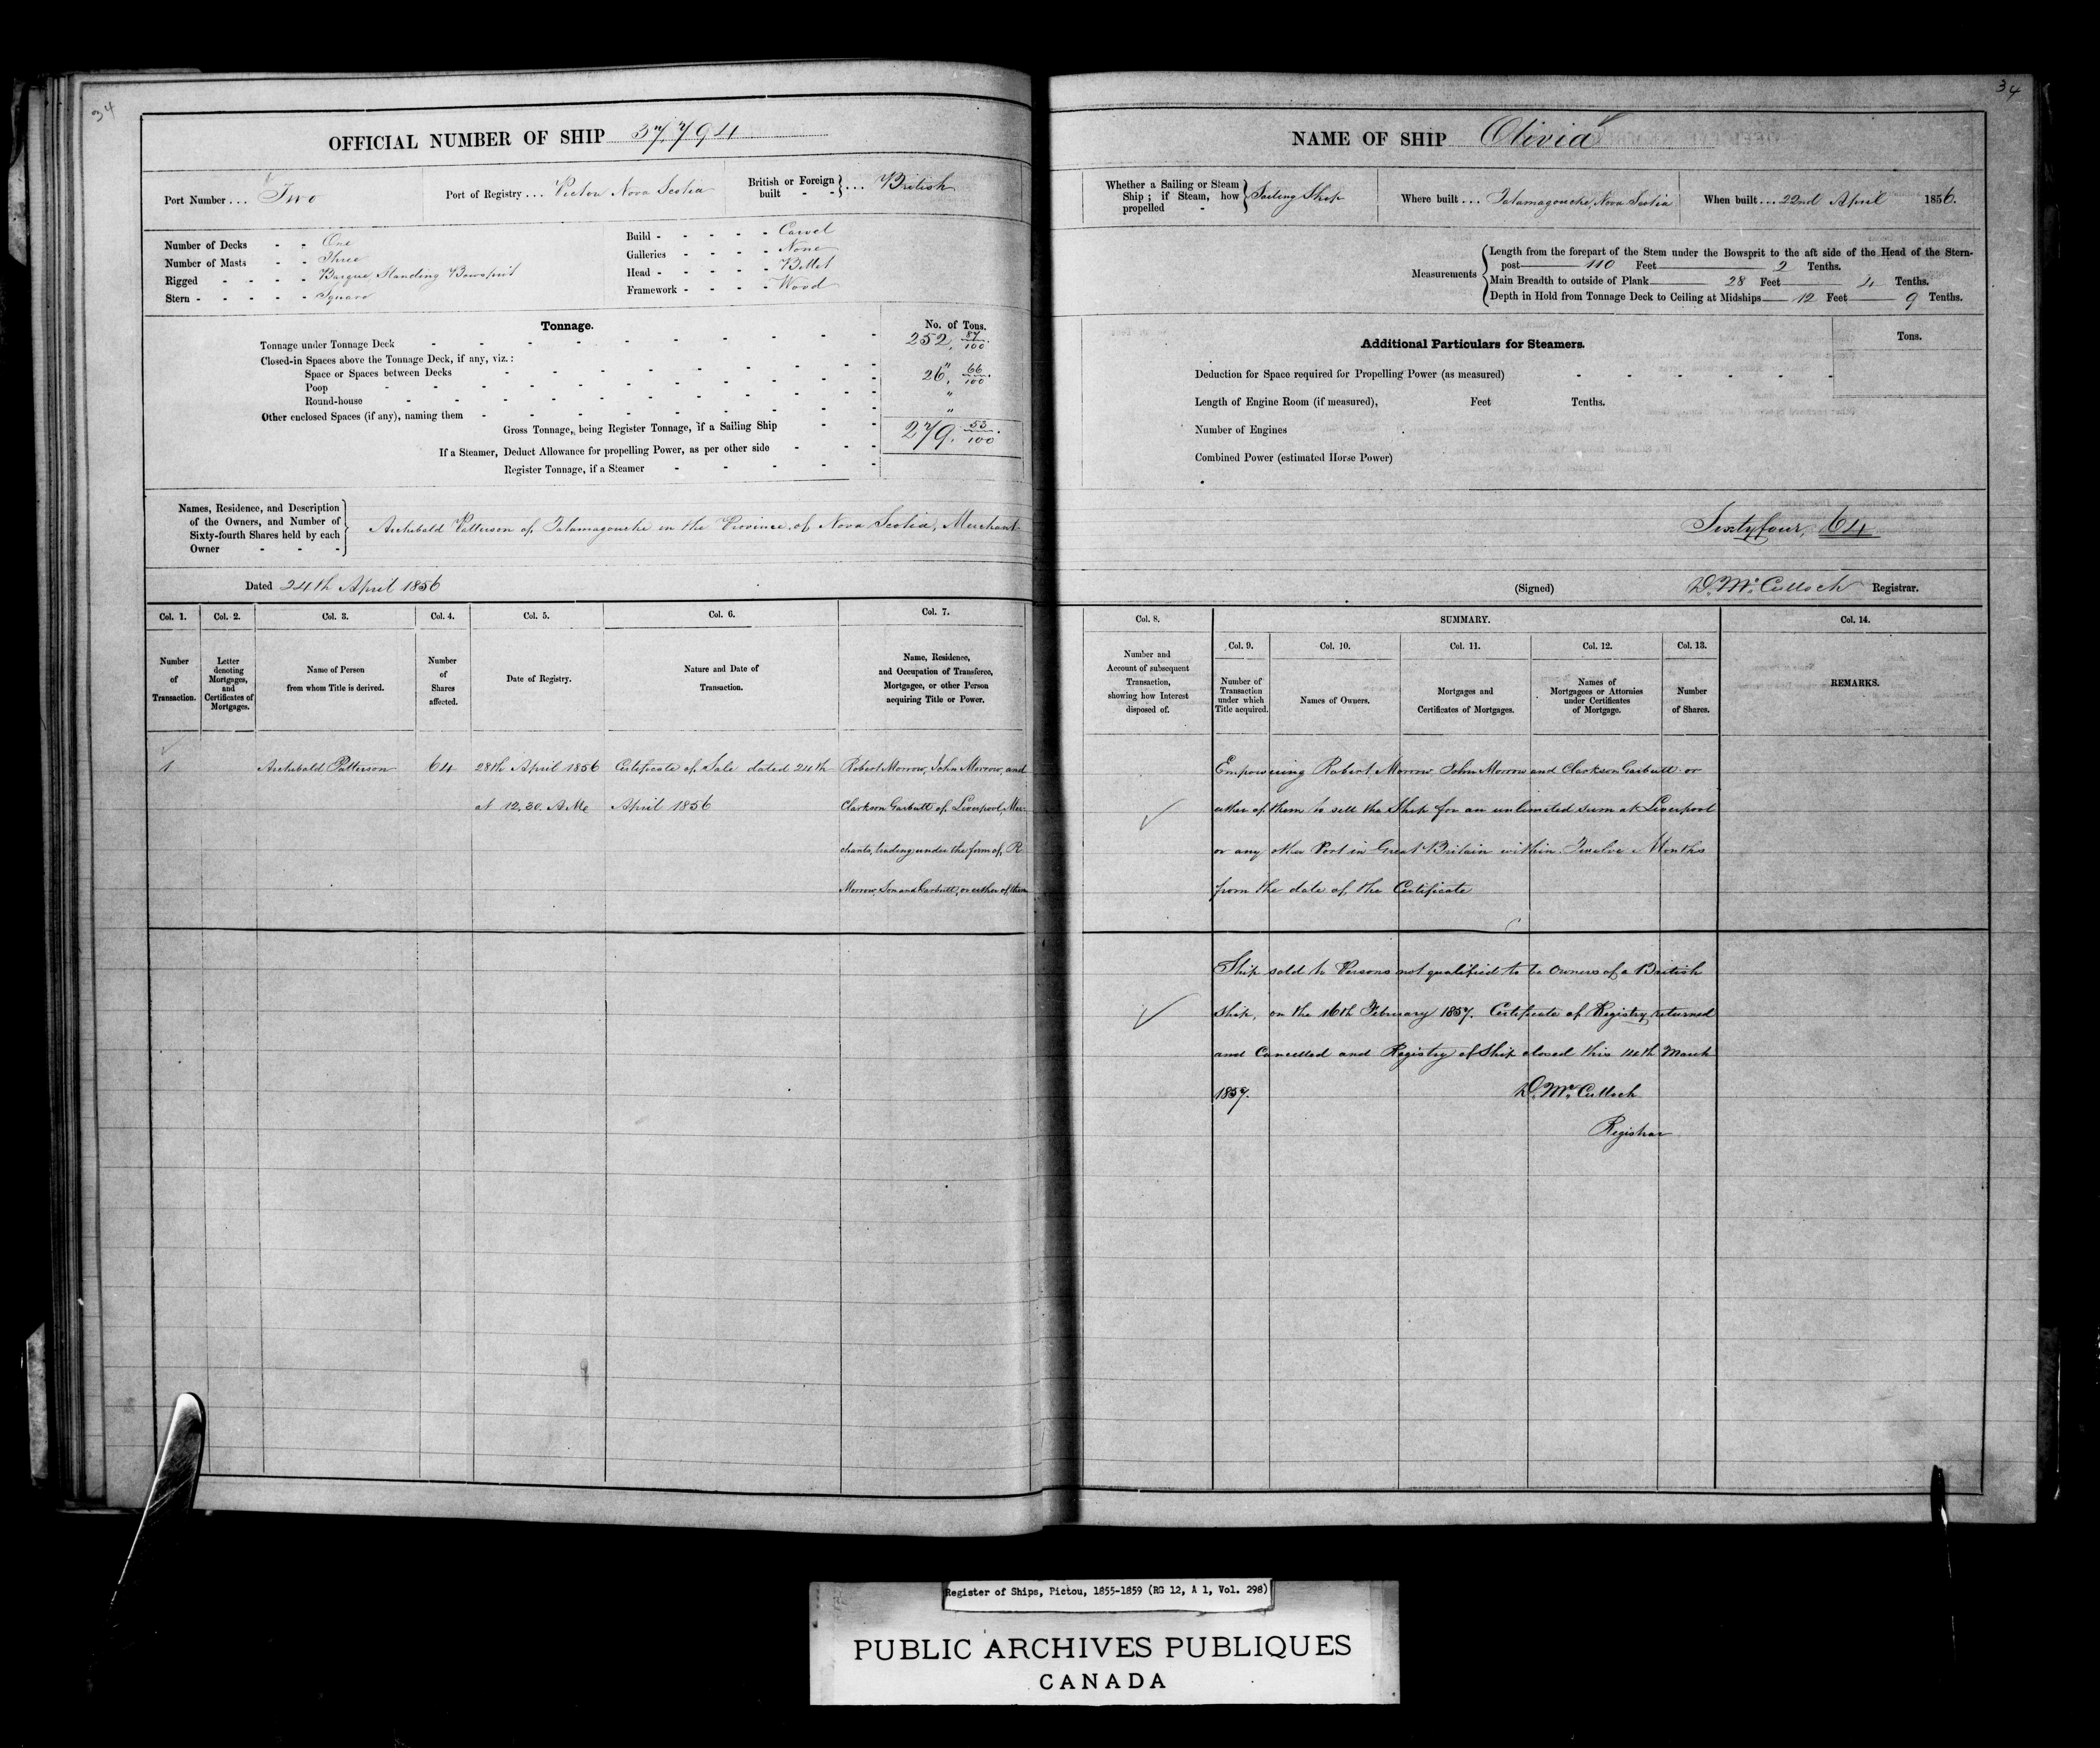 34
OFFICIAL NUMBER OF SHIP 37,794
Port Number ... Two
Port of Registry ... Pictou Nova Scotia
British or Foreign built - } ... British
Number of Decks - - One
Number of Masts - - Three
Rigged - - - - Barque Standing Bowsprit
Stern - - - - - Square
Build - - - - - Carvel
Galleries - - - - None
Head - - - - - Billet
Framework - - - - Wood
Tonnage.
No. of Tons.
Tonnage under Tonnage Deck 252. 87/100
Closed-in Spaces above the Tonnage Deck, if any, viz.:
Space or Spaces between Decks "
Poop 26. 66/100
Round-house "
Other enclosed Spaces (if any), naming them "
Gross Tonnage, being Register Tonnage, if a Sailing Ship 279. 53/100
If a Steamer, Deduct Allowance for propelling Power, as per other side
Register Tonnage, if a Steamer
Names, Residence, and Description
of the Owners, and Number of
Sixty-fourth Shares held by each
Owner - - -
Archibald Patterson of Tatamagouche in the Province of Nova Scotia, Merchant
Dated 24th April 1856
Col. 1. Col. 2. Col. 3. Col. 4. Col. 5. Col. 6. Col. 7.
Number of Transaction.
Letter denoting Mortgages, and Certificates of Mortgages.
Name of Person from whom Title is derived.
Number of Shares affected.
Date of Registry.
Nature and Date of Transaction.
Name, Residence, and Occupation of Transferee, Mortgagee, or other Person acquiring Title or Power.
1 Archibald Patterson 64 28th April 1856 Certificate of Sale dated 24th Robert Morrow, John Morrow, and
at 12.30. A Me April 1856 Clarkson Garbutt of Liverpool, Mer-
chants, trading under the form of R
Morrow, Son and Garbutt, or either of them
34
NAME OF SHIP Olivia
Whether a Sailing or Steam Ship; if Steam, how propelled - } Sailing Ship
Where built ... Tatamagouche, Nova Scotia
When built ... 22nd April 1856.
Measurements
Length from the forepart of the Stem under the Bowsprit to the aft side of the Head of the Stern-
post 110 Feet 2 Tenths.
Main Breadth to outside of Plank 28 Feet 4 Tenths.
Depth in Hold from Tonnage Deck to Ceiling at Midships 12 Feet 9 Tenths.
Additional Particulars for Steamers.
Tons.
Deduction for Space required for Propelling Power (as measured)
Length of Engine Room (if measured), Feet Tenths.
Number of Engines
Combined Power (estimated Horse Power)
Sixty four, 64
(Signed) D. McCulloch Registrar.
Col. 8. SUMMARY. Col. 14.
Col. 9. Col. 10. Col. 11. Col. 12. Col. 13.
Number and Account of subsequent Transaction, showing how Interest disposed of.
Number of Transaction under which Title acquired.
Names of Owners.
Mortgages and Certificates of Mortgages.
Names of Mortgagees or Attornies under Certificates of Mortgage.
Number of Shares.
REMARKS.
Empowering Robert Morrow John Morrow and Clarkson Garbutt or
either of them to sell the Ship for an unlimited sum at Liverpool
or any other Port in Great Britain within Twelve Months
from the date of the Certificate
Ship sold to Persons not qualified to be Owners of a British
Ship, on the 16th February 1857. Certificate of Registry returned
and Cancelled and Registry of Ship closed this 14th March
1857. D. McCulloch
Registrar
Register of Ships, Pictou, 1855-1859 (RG 12, A 1, Vol. 298)
PUBLIC ARCHIVES PUBLIQUES
CANADA